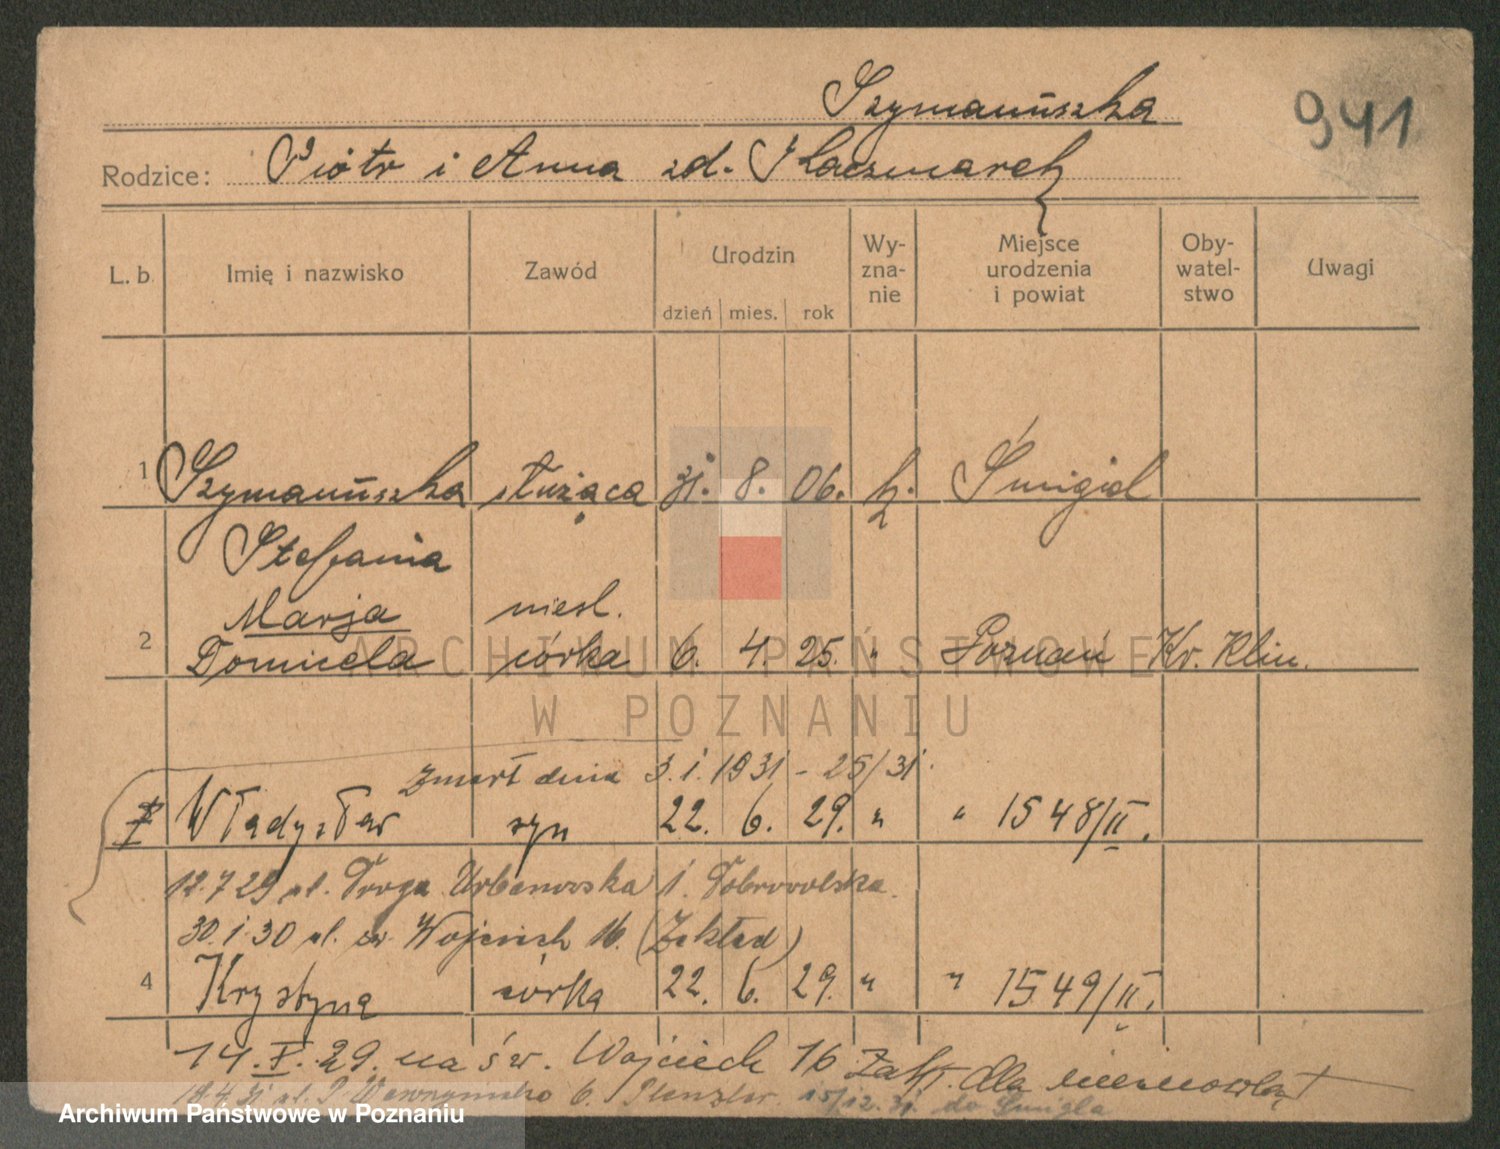 Szymańszka
941
Rodzice: Piotr i Anna zd. Kaczmarek
L. b. Imię i nazwisko Zawód Urodzin dzień mies. rok Wy-zna-nie Miejsce urodzenia i powiat Oby-watel-stwo Uwagi
1 Szymańszka służąca 31. 8. 06. k. Śmigiel
Stefania
Marja niesl.
2 Domicela córka 6. 4. 25. " Poznań Kr. Klin.
zmarł dnia 3.1.1931 - 25/31.
Władysław syn 22. 6. 29. " " 1548/II.
12.7.29 ul. Urbanowska i. Dobrowolska.
30.1.30 ul. św. Wojciech 16. (Zakład)
4 Krystyna córka 22. 6. 29. " " 1549/II.
14.X.29. na św. Wojciech 16 Zakł. dla niemowląt
19.4.31 ul. P. Wawrzyniaka 6. 15/12.31. do Śmigla
ARCHIWUM PAŃSTWOWE
W POZNANIU
Archiwum Państwowe w Poznaniu